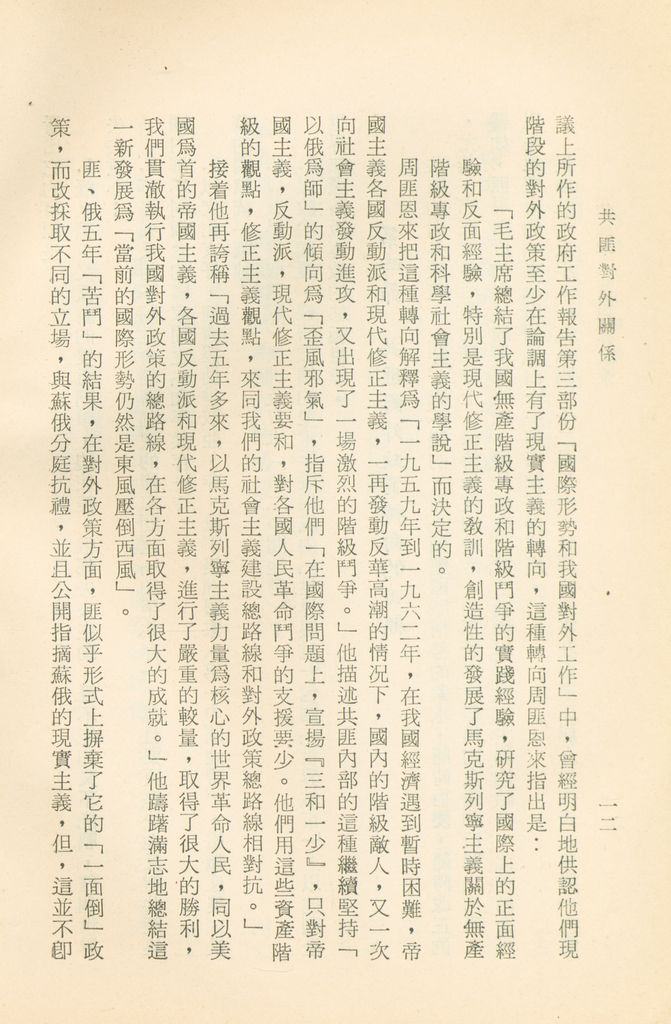 共匪對外關係
一二
議上所作的政府工作報告第三部份「國際形勢和我國對外工作」中，曾經明白地供認他們現
階段的對外政策至少在論調上有了現實主義的轉向，這種轉向周匪恩來指出是：
「毛主席總結了我國無產階級專政和階級鬥爭的實踐經驗，研究了國際上的正面經
驗和反面經驗，特別是現代修正主義的敎訓，創造性的發展了馬克斯列寧主義關於無產
階級專政和科學社會主義的學說」而決定的。
周匪恩來把這種轉向解釋爲「一九五九年到一九六二年，在我國經濟遇到暫時困難，帝
國主義各國反動派和現代修正主義，一再發動反華高潮的情況下，國內的階級敵人，又一次
向社會主義發動進攻，又出現了一場激烈的階級鬥爭。」他描述共匪內部的這種繼續堅持「
以俄爲師」的傾向爲「歪風邪氣」，指斥他們「在國際問題上，宣揚『三和一少』，只對帝
國主義，反動派，現代修正主義要和，對各國人民革命鬥爭的支援要少。他們用這些資產階
級的觀點，修正主義觀點，來同我們的社會主義建設總路線和對外政策總路線相對抗。」
接着他再誇稱「過去五年多來，以馬克斯列寧主義力量爲核心的世界革命人民，同以美
國爲首的帝國主義，各國反動派和現代修正主義，進行了嚴重的較量，取得了很大的勝利，
我們貫澈執行我國對外政策的總路線，在各方面取得了很大的成就。」他躊躇滿志地總結這
一新發展爲「當前的國際形勢仍然是東風壓倒西風」。
匪、俄五年「苦鬥」的結果，在對外政策方面，匪似乎形式上摒棄了它的「一面倒」政
策，而改採取不同的立場，與蘇俄分庭抗禮，並且公開指摘蘇俄的現實主義，但，這並不卽